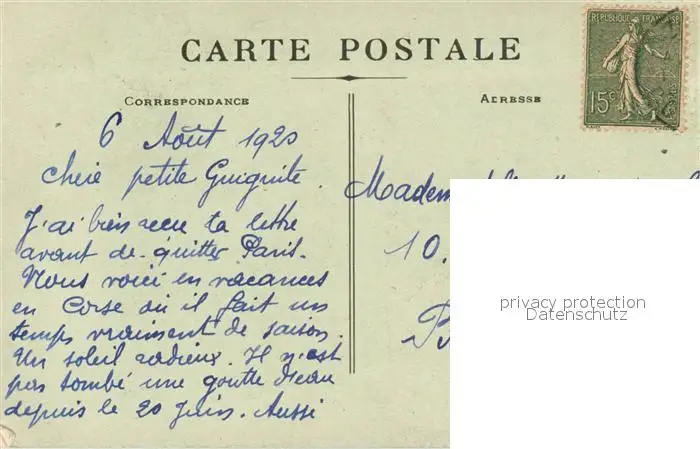 CARTE POSTALE
RÉPUBLIQUE FRANÇAISE
15c POSTES
CORRESPONDANCE
ADRESSE
6 Août 1920
Chère petite Guiguite
J'ai bien reçu ta lettre
avant de quitter Paris.
Nous voici en vacances
en Corse où il fait un
temps vraiment de saison.
Un soleil radieux. Il n'est
pas tombé une goutte d'eau
depuis le 20 Juin. Aussi
10.
privacy protection
Datenschutz